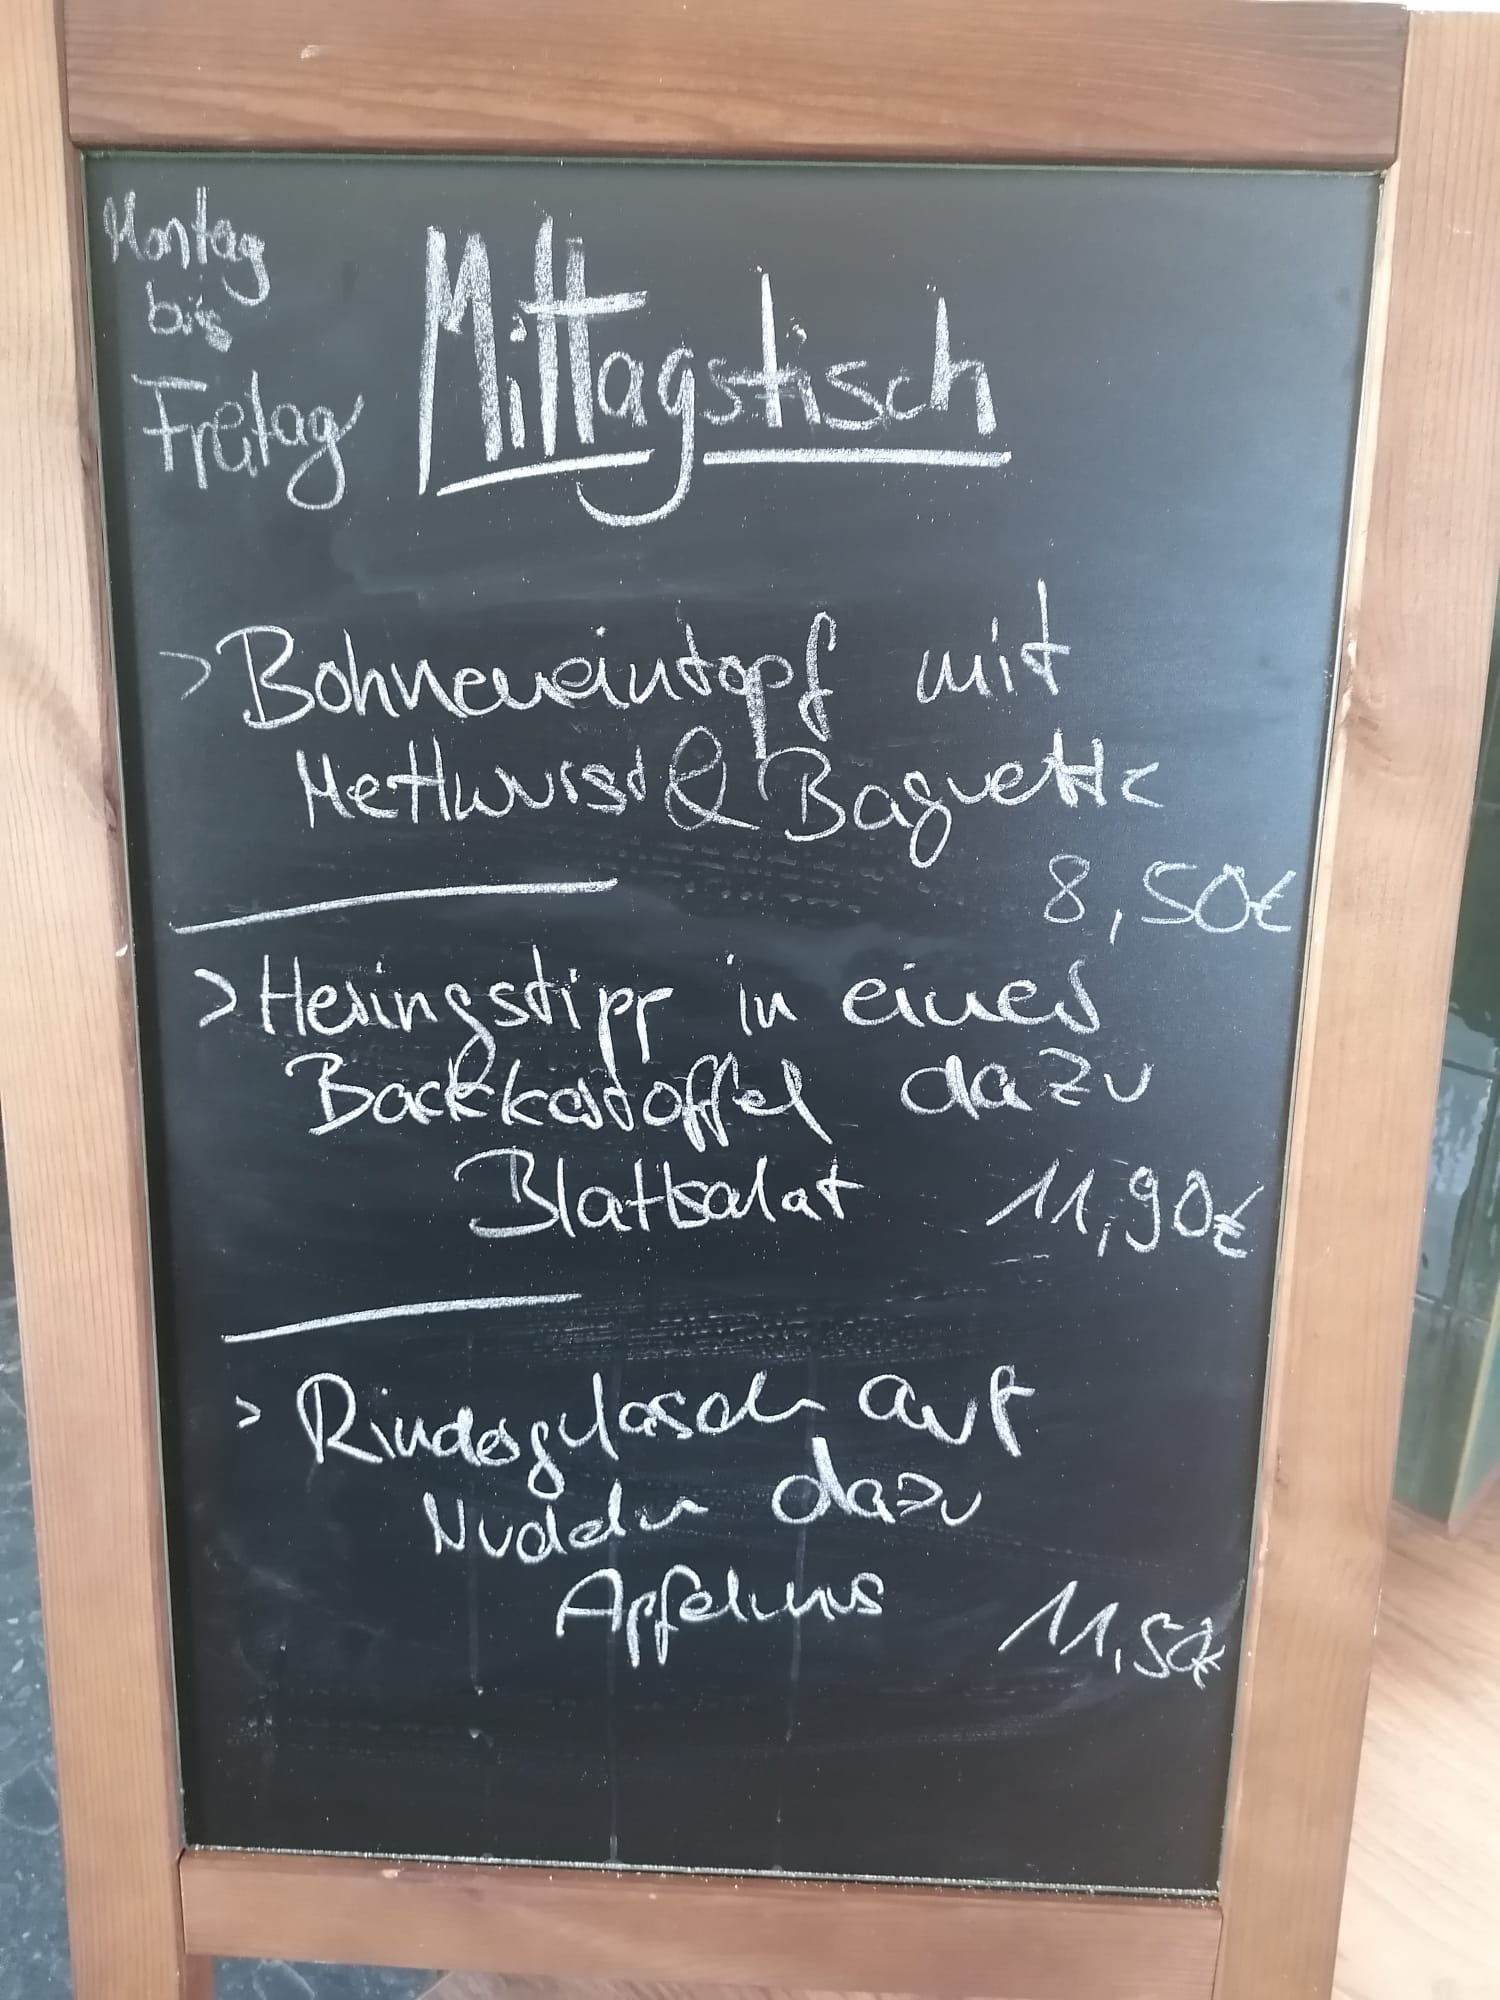 Montag
bis
Freitag
Mittagstisch
> Bohneneintopf mit
Mettwurst & Baguette
8,50€
> Heringstipp in einer
Backkartoffel dazu
Blattsalat 11,90€
> Rindergulasch auf
Nudeln dazu
Apfelmus
11,50€